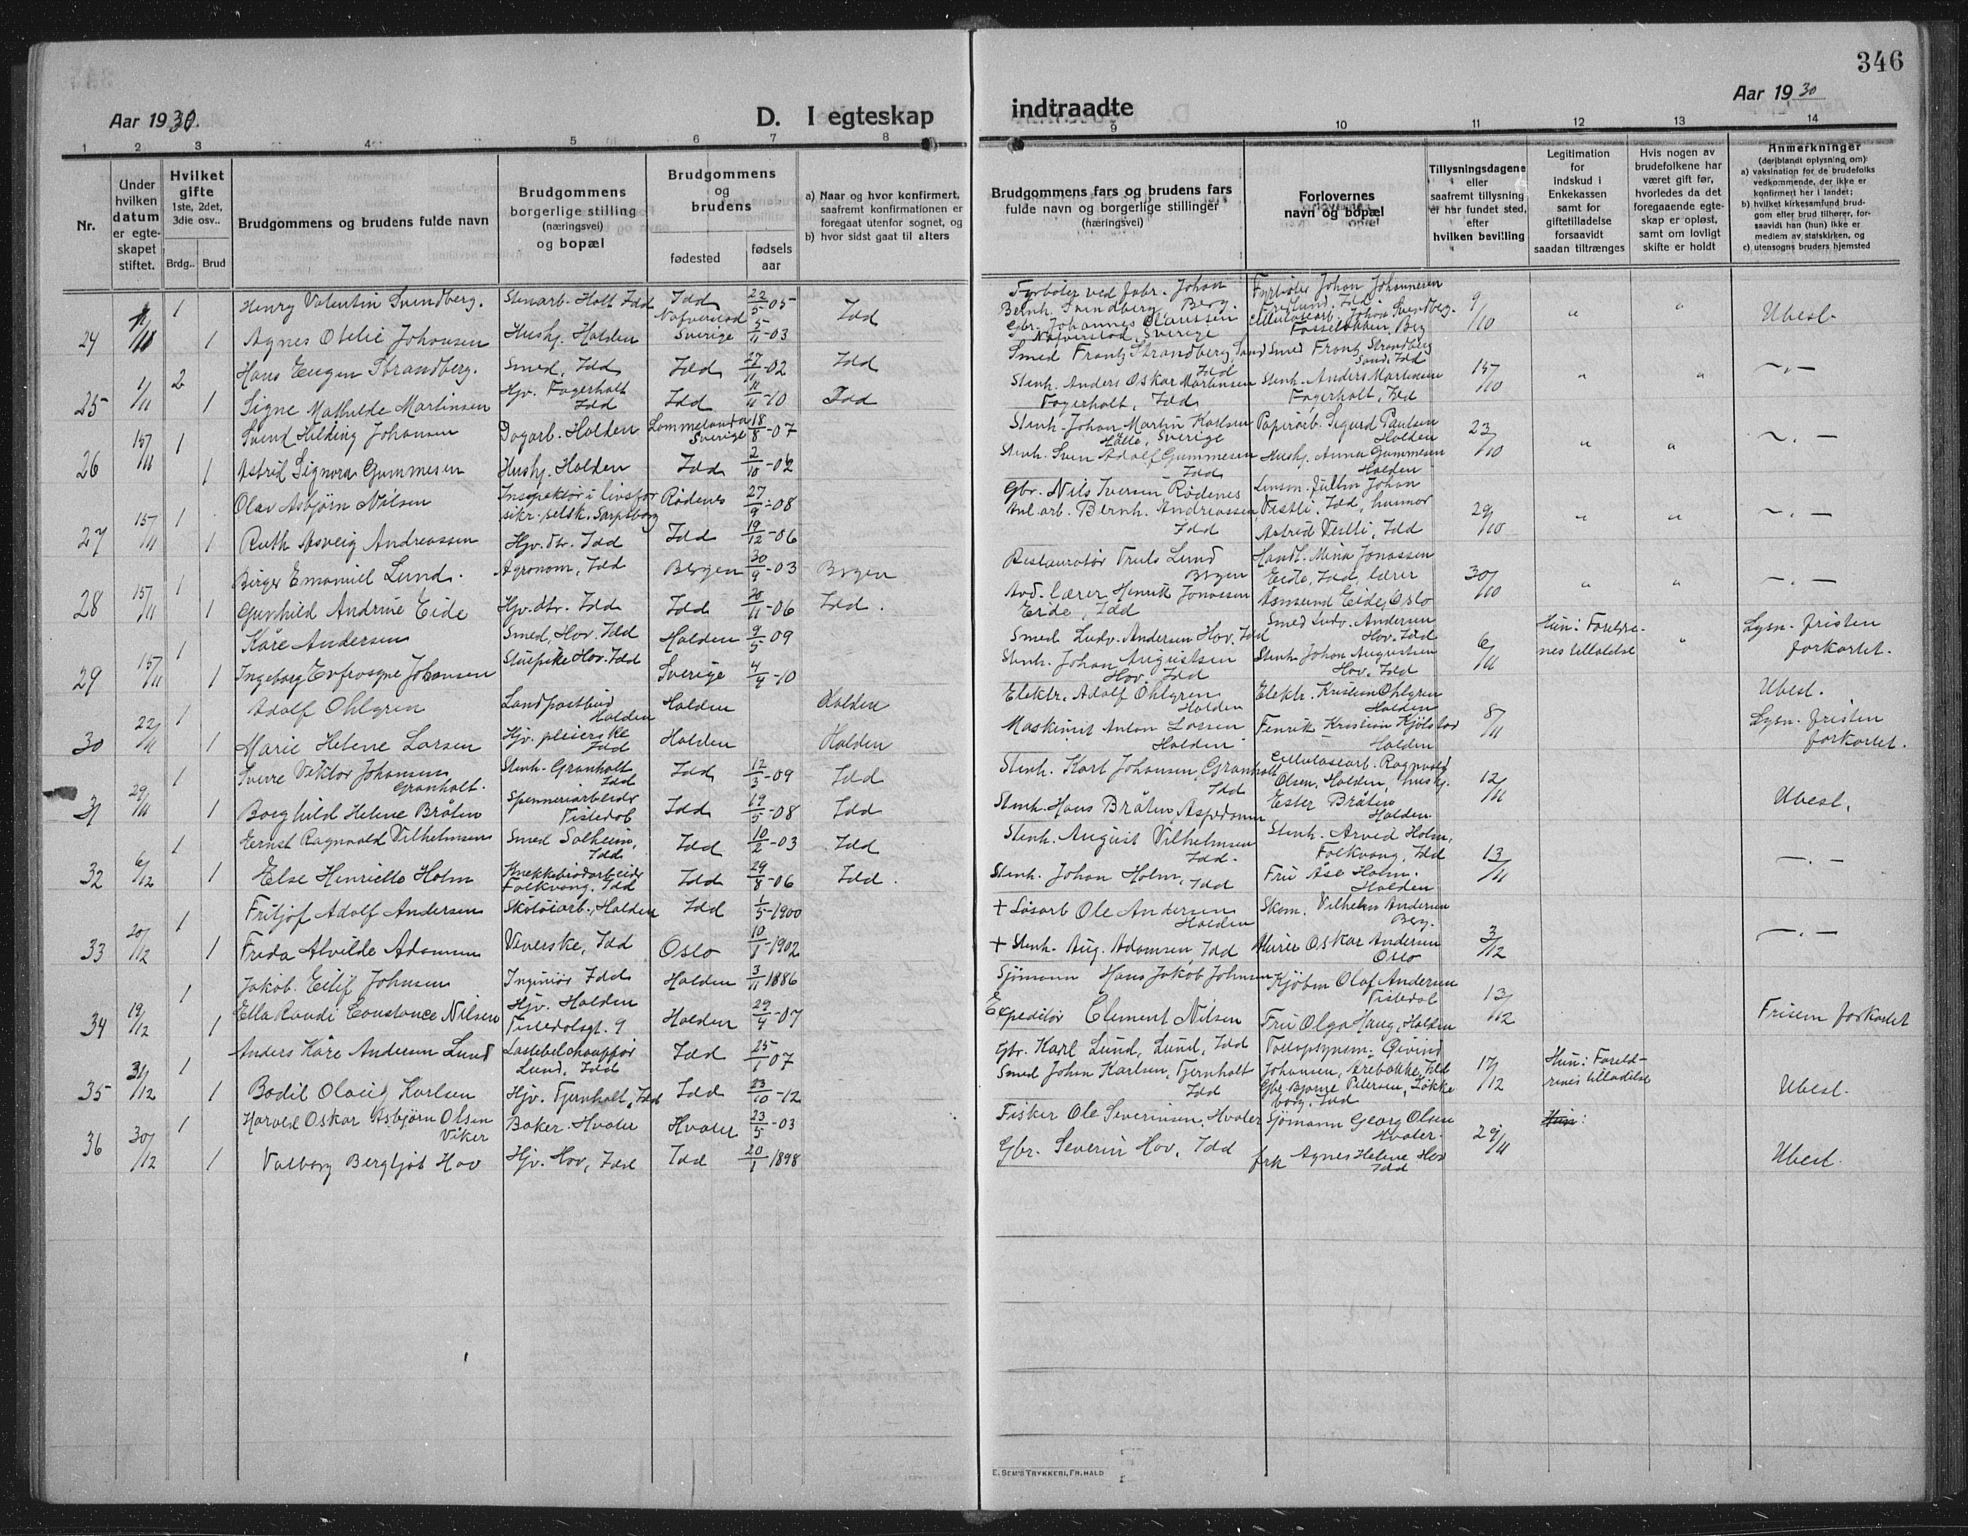 346
Aar 1930.
D. I egteskap
indtraadte
Aar 1930
1 2 3 4 5 6 7 8
9 10 11 12 13 14
Nr.
Under hvilken datum er egteskapet stiftet.
Hvilket gifte 1ste, 2det, 3die osv..
Brdg.. Brud
Brudgommens og brudens fulde navn
Brudgommens borgerlige stilling (næringsvei) og bopæl
Brudgommens og brudens
fødested
fødsels aar
a) Naar og hvor konfirmert, saafremt konfirmationen er foregaat utenfor sognet, og
b) hvor sidst gaat til alters
Brudgommens fars og brudens fars fulde navn og borgerlige stillinger (næringsvei)
Forlovernes navn og bopæl
Tillysningsdagene eller saafremt tillysning er har fundet sted, efter hvilken bevilling
Legitimation for indskud i Enkekassen samt for giftetilladelse forsaavidt saadan tiltrænges
Hvis nogen av brudefolkene har været gift før, hvorledes da det foregaaende egteskap er opløst, samt om lovligt skifte er holdt
Anmerkninger (deriblandt oplysning om) a) vaksination for de brudefolks vedkommende, der ikke er konfirmert her i landet; b) hvilket kirkesamfund brudgom eller brud tilhører, forsaavidt han (hun) ikke er medlem av statskirken, og c) utensogns bruders hjemsted
1 Henry Valentin Svendberg. Stenarb. Holt Idd Idd 22/5-05 Fyrbøter ved fabr. Johan Fyrbøter Johan Johannesen
Bernh. Svendberg, Berg.
24 1 Agnes Otelie Johansen Hushj. Halden Nafverstad Sverige 5/11-03 Idd Gbr. Johannes Claussen Nafverstad, Sverige Cellulosearb. Johan Svendberg. Fosseløkken, Berg 9/10 " " Ubest.
2 Hans Eugen Strandberg. Smed, Idd Idd 27/11-02 Idd Smed Frantz Strandberg, Sand Idd Smed Frantz Strandberg Sand, Idd
25 1/11 1 Signe Mathilde Martinsen Hjv. Fagerholt Idd Idd 11/11-10 Idd Stenh. Anders Oskar Martinsen Fagerholt, Idd Stenh. Anders Martinsen Fagerholt, Idd 15/10 " " -"-
1 Svend Hilding Johansen Dagarb. Halden Lommelanda Sverige 18/8-07 Stenh. Johan Martin Karlsen Hälle, Sverige Papirarb. Sigurd Paulsen Halden
26 15/11 1 Astrid Signora Gummesen Hushj. Halden Idd 2/10-02 Stenh. Sven Adolf Gummesen Idd Hushj. Anna Gummesen Halden 23/10 " " -"-
1 Olav Asbjørn Nilsen Inspektør i livsforsikr.selsk. Sarpsborg Rødenes 27/9-08 Gbr. Nils Iversen Rødenes
27 15/11 1 Ruth Asveig Andreassen Hjv. dtr. Idd Idd 19/12-06 Anl.arb. Bernh. Andreassen, Idd Vestli, Idd, husmor Astrid Vestli, Idd 29/10 " " -"-
1 Birger Emanuel Lund. Agronom, Idd Bergen 30/9-03 Bergen Restauratør Truls Lund Bergen Handl. Mina Jonassen
28 15/11 1 Gunhild Andrine Eide Hjv. dtr. Idd Idd 20/11-06 Idd. Avd. lærer Henrik Jonassen Eide, Idd Eide, Idd, lærer Asmund Eide, Oslo 30/10 " " -"-
1 Kåre Andersen Smed, Hov. Idd Halden 9/5-09 Smed Ludv. Andersen Hov, Idd Smed Ludv. Andersen Hov. Idd
29 15/11 1 Ingeborg Eufrosyne Johansen Stuepike Hov. Idd Sverige 4/4-10 Stenh. Johan Augustsen Hov, Idd Stenh. Johan Augustsen Hov. Idd 6/11 Hun: Foreldrenes tilladelse " Lysn. fristen forkortet.
1 Adolf Ohlgren Landpostbud Halden Halden Halden Elektr. Adolf Öhlgren Halden Elektr. Kristian Ohlgren Halden Ubest.
30 22/11 1 Marie Helene Larsen Hjv. pleierske Idd Halden Halden Maskinist Anton Larsen Halden Fenrik Kristian Kjølstad Halden 8/11 Lysn. fristen forkortet.
1 Sverre Viktor Johansen Granholt. Stenh. Granholt Idd Idd 12/3-09 Idd Stenh. Karl Johansen, Granholt Idd Cellulosearb. Ragnvald Olsen, Halden, hushj.
31 29/11 1 Borghild Helene Bråten Spenneriarbeider Tistedal Idd 19/5-08 Idd Stenh. Hans Bråten, Aspedamm Ester Bråten Halden 12/11 Ubest.
1 Ernst Ragnvald Vilhelmsen Smed Solheim, Idd Idd 10/2-03 Idd Stenh. August Vilhelmsen Idd. Stenh. Arvid Holm, Folkvang, Idd
32 6/12 1 Else Henriette Holm Knekkebrødarbeider Folkvang. Idd Idd 29/8-06 Idd. Stenh. Johan Holm, Idd Fru Åse Holm. Halden 13/11 -"-
1 Fritjof Adolf Andersen Skotøiarb., Halden Idd 1/5-1900 + Løsarb Ole Andersen Halden Skom. Vilhelm Andersen Berg.
33 20/12 1 Frida Alvilde Adamsen Væverske, Idd Oslo 10/1-1902 + Stenh. Aug. Adamsen, Idd Murer Oskar Andersen Oslo 3/12 -"-
1 Jakob Eilif Johnsen Ingeniør Idd Halden 3/11 1886 Sjømann Hans Jakob Johnsen Kjøbm Olaf Andersen Tistedal
34 19/12 1 Ella Randi Constance Nilsen Hjv. Halden Tistedalsgt. 9 Halden 29/4-07 Expeditør Clement Nilsen Fru Olga Haug, Halden 13/12 Fristen forkortet
1 Anders Kåre Andersen Lund Lastebilchauffør Lund, Idd Idd 25/1 07 Gbr. Karl Lund, Lund, Idd Tollopsynsm. Øivind Johansen, Arebakke, Idd
35 31/12 1 Bodil Olaug Karlsen Hjv. Tjernholt, Idd Idd 23/10-12 Smed John Karlsen, Tjernholt Idd Gbr. Bjarne Petersen, Løkkeborg. Idd 17/12 Hun: Foreldrenes tilladelse Ubest.
1 Harald Oskar Asbjørn Olsen Viker Baker. Hvaler Hvaler 23/5-03 Fisker Ole Severinsen, Hvaler Sjømann Georg Olsen Hvaler. Hun:
36 30/12 1 Valborg Bergljot Hov Hjv. Hov, Idd Idd 20/1 1898 Gbr. Severin Hov, Idd frk Agnes Helene Hov Idd 29/11 Ubest.
E. SEM'S TRYKKERI, FR.HALD